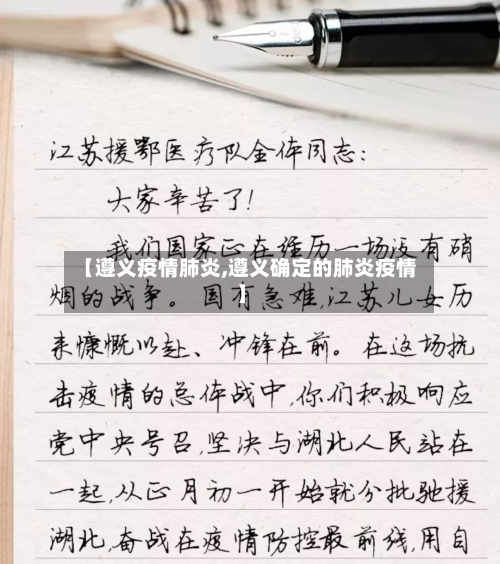 江苏援鄂医疗队全体同志：
大家辛苦了！
我们国家正在经历一场没有硝
【遵义疫情肺炎,遵义确定的肺炎疫情
】
烟的战争。国有急难,江苏儿女历
来慷慨以赴、冲锋在前。在这场抗
击疫情的总体战中,你们积极响应
党中央号召,坚决与湖北人民站在
一起,从正月初一开始就分批驰援
湖北,奋战在疫情防控最前线,用自